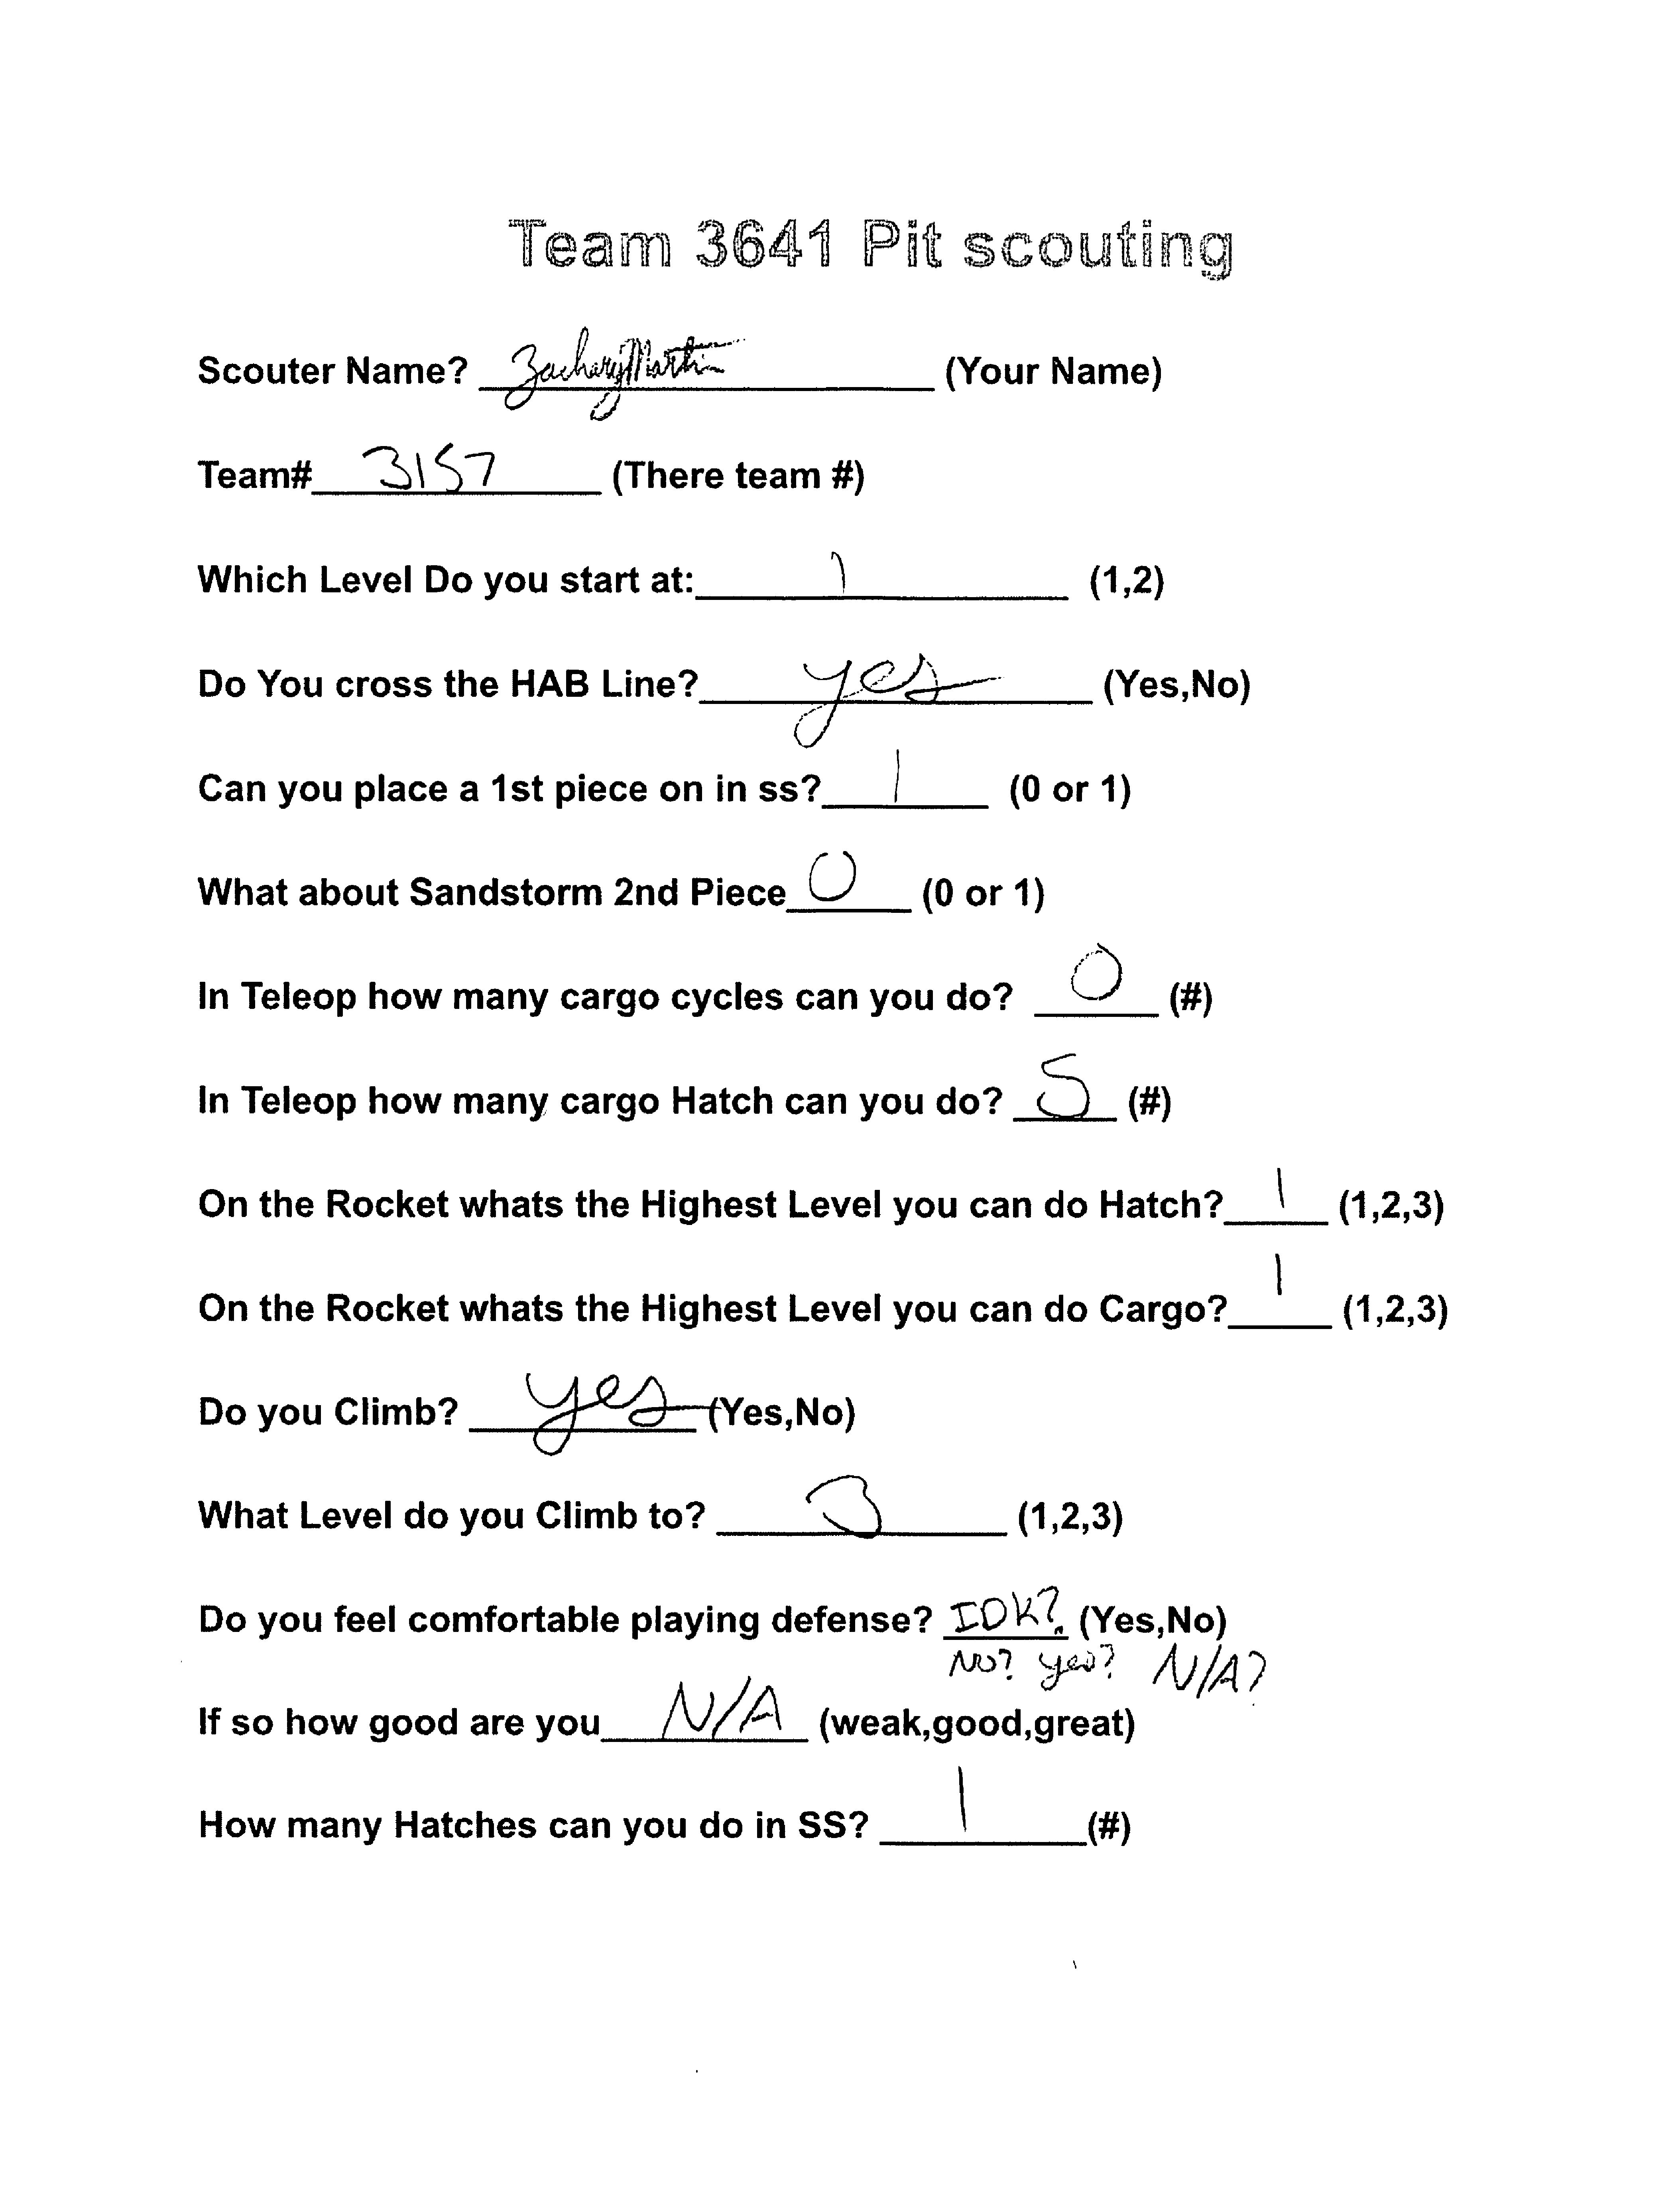 Team 3641 Pit scouting
Scouter Name? Zachary Martin (Your Name)
Team# 3157 (There team #)
Which Level Do you start at: 1 (1,2)
Do You cross the HAB Line? yes (Yes,No)
Can you place a 1st piece on in ss? 1 (0 or 1)
What about Sandstorm 2nd Piece 0 (0 or 1)
In Teleop how many cargo cycles can you do? 0 (#)
In Teleop how many cargo Hatch can you do? 5 (#)
On the Rocket whats the Highest Level you can do Hatch? 1 (1,2,3)
On the Rocket whats the Highest Level you can do Cargo? 1 (1,2,3)
Do you Climb? yes (Yes,No)
What Level do you Climb to? 3 (1,2,3)
Do you feel comfortable playing defense? IDK? (Yes,No)
No? yes? N/A?
If so how good are you N/A (weak,good,great)
How many Hatches can you do in SS? 1 (#)